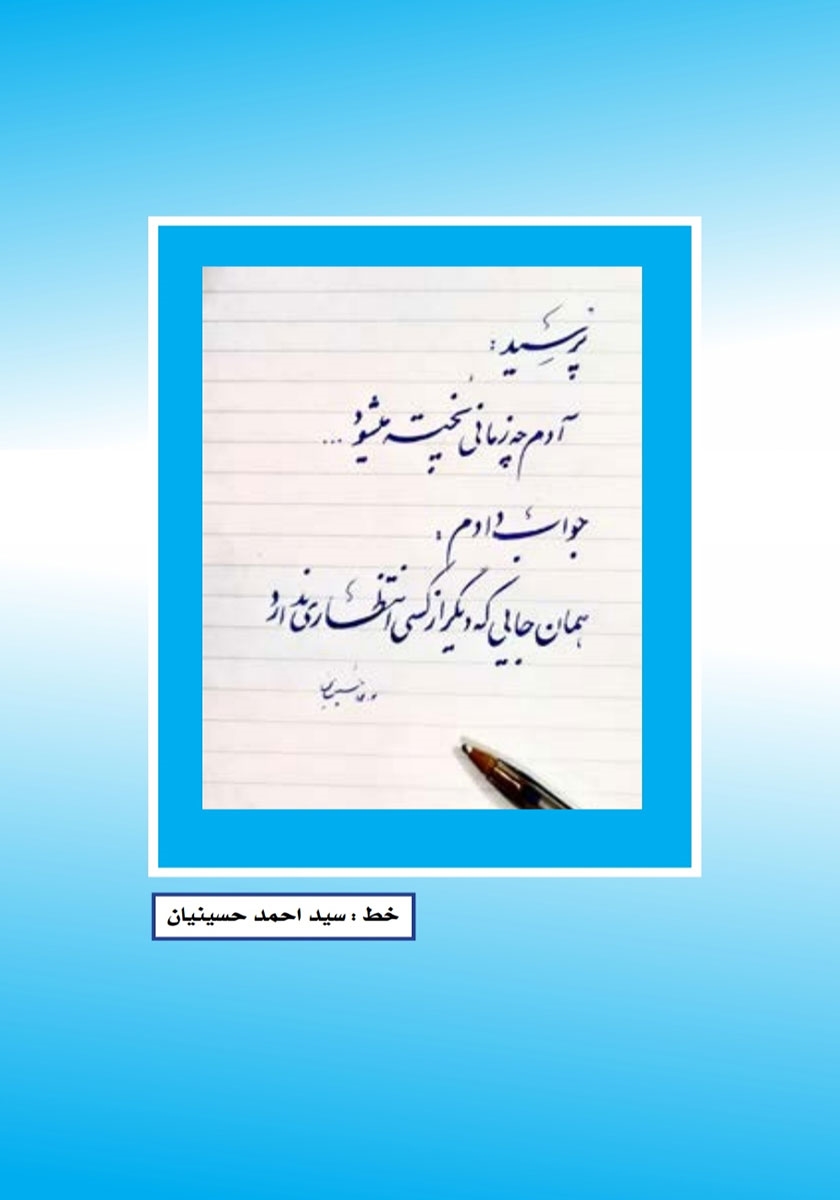 پرسید :
آدم چه زمانی پخته میشود ...
جواب دادم :
همان جایی که دیگر از کسی انتظاری ندارد
خط : سید احمد حسینیان